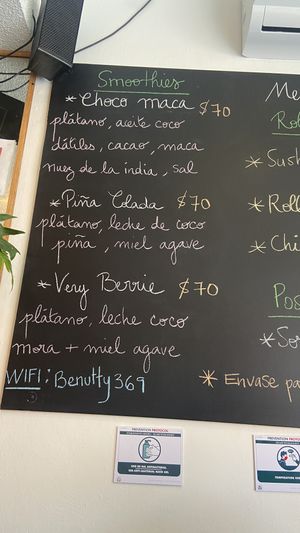 Smoothies
* Choco maca $70
plátano, aceite coco
dátiles, cacao, maca
nuez de la india, sal
* Piña Colada $70
plátano, leche de coco
piña, miel agave
* Very Berrie $70
plátano, leche coco
mora + miel agave
WIFI: Benutty369
Me
Rol
* Sush
* Roll
* Chi
Pos
* Sor
* Envase pa
PREVENTION PROTOCOL
USO DE GEL ANTIBACTERIAL
USE ANTI-BACTERIAL HAND GEL
PREVENTION PROTOCOL